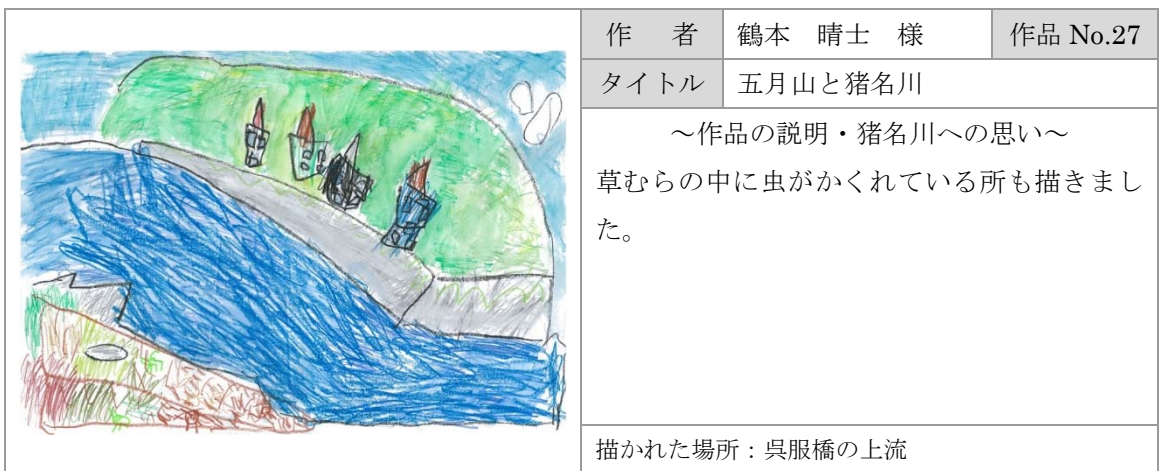 作 者 鶴本 晴士 様 作品 No.27
タイトル 五月山と猪名川
～作品の説明・猪名川への思い～
草むらの中に虫がかくれている所も描きまし
た。
描かれた場所：呉服橋の上流